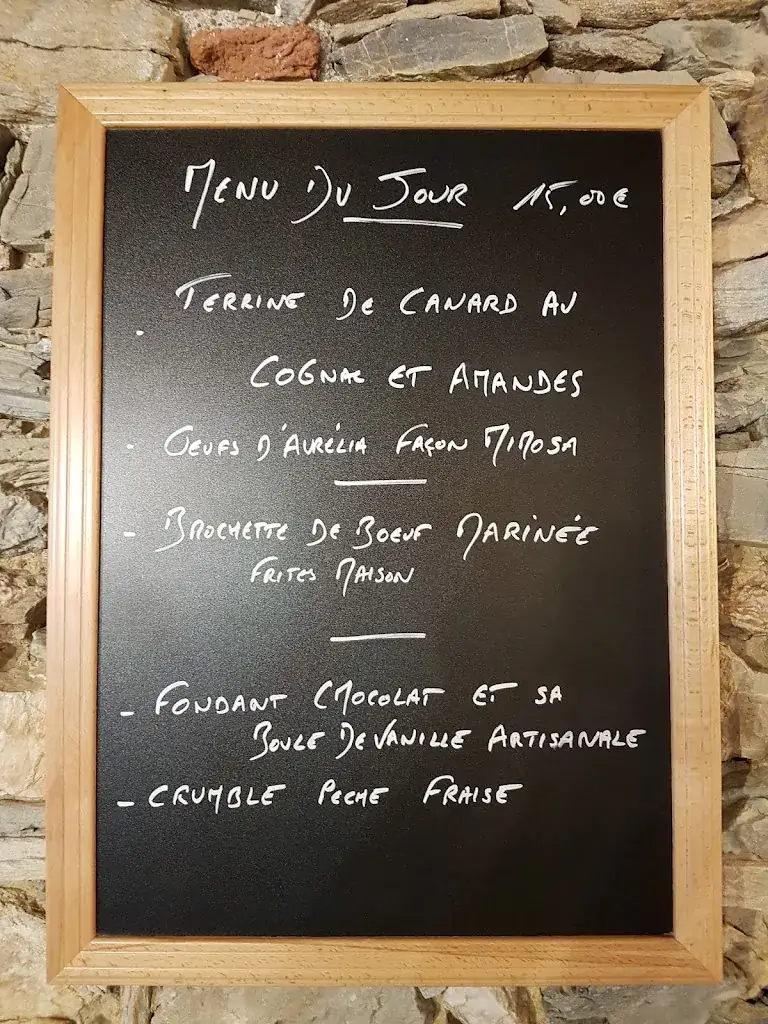 MENU DU JOUR 15,00€
TERRINE DE CANARD AU
COGNAC ET AMANDES
- OEUFS D'AURÉLIA FAÇON MIMOSA
- BROCHETTE DE BOEUF MARINÉE
FRITES MAISON
- FONDANT CHOCOLAT ET SA
BOULE DE VANILLE ARTISANALE
- CRUMBLE PECHE FRAISE